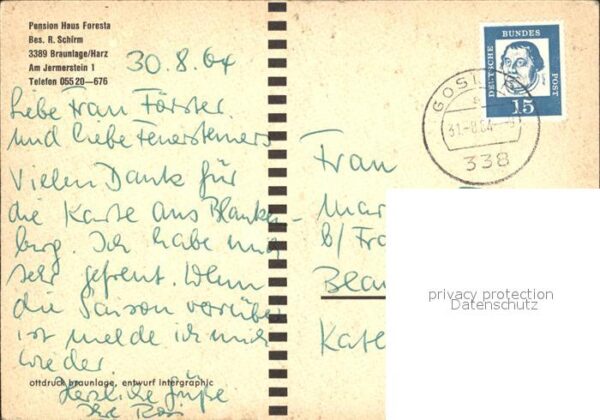 Pension Haus Foresta
Bes. R. Schirm
3389 Braunlage/Harz
Am Jermerstein 1
Telefon 05520—676
30.8.64
Liebe Frau Förster
und liebe Feuersteiners
Vielen Dank für
die Karte aus Blanken-
berg. Ich habe mich
sehr gefreut. Wenn
die Saison vorüber
ist melde ich mich
wieder.
Herzliche Grüße
Ihre
ottdruck braunlage, entwurf intergraphic
DEUTSCHE BUNDES POST
15
GOSL
31.-8.64.-
338
Frau
Mar
b/ Fra
Blan
Kate
privacy protection
Datenschutz